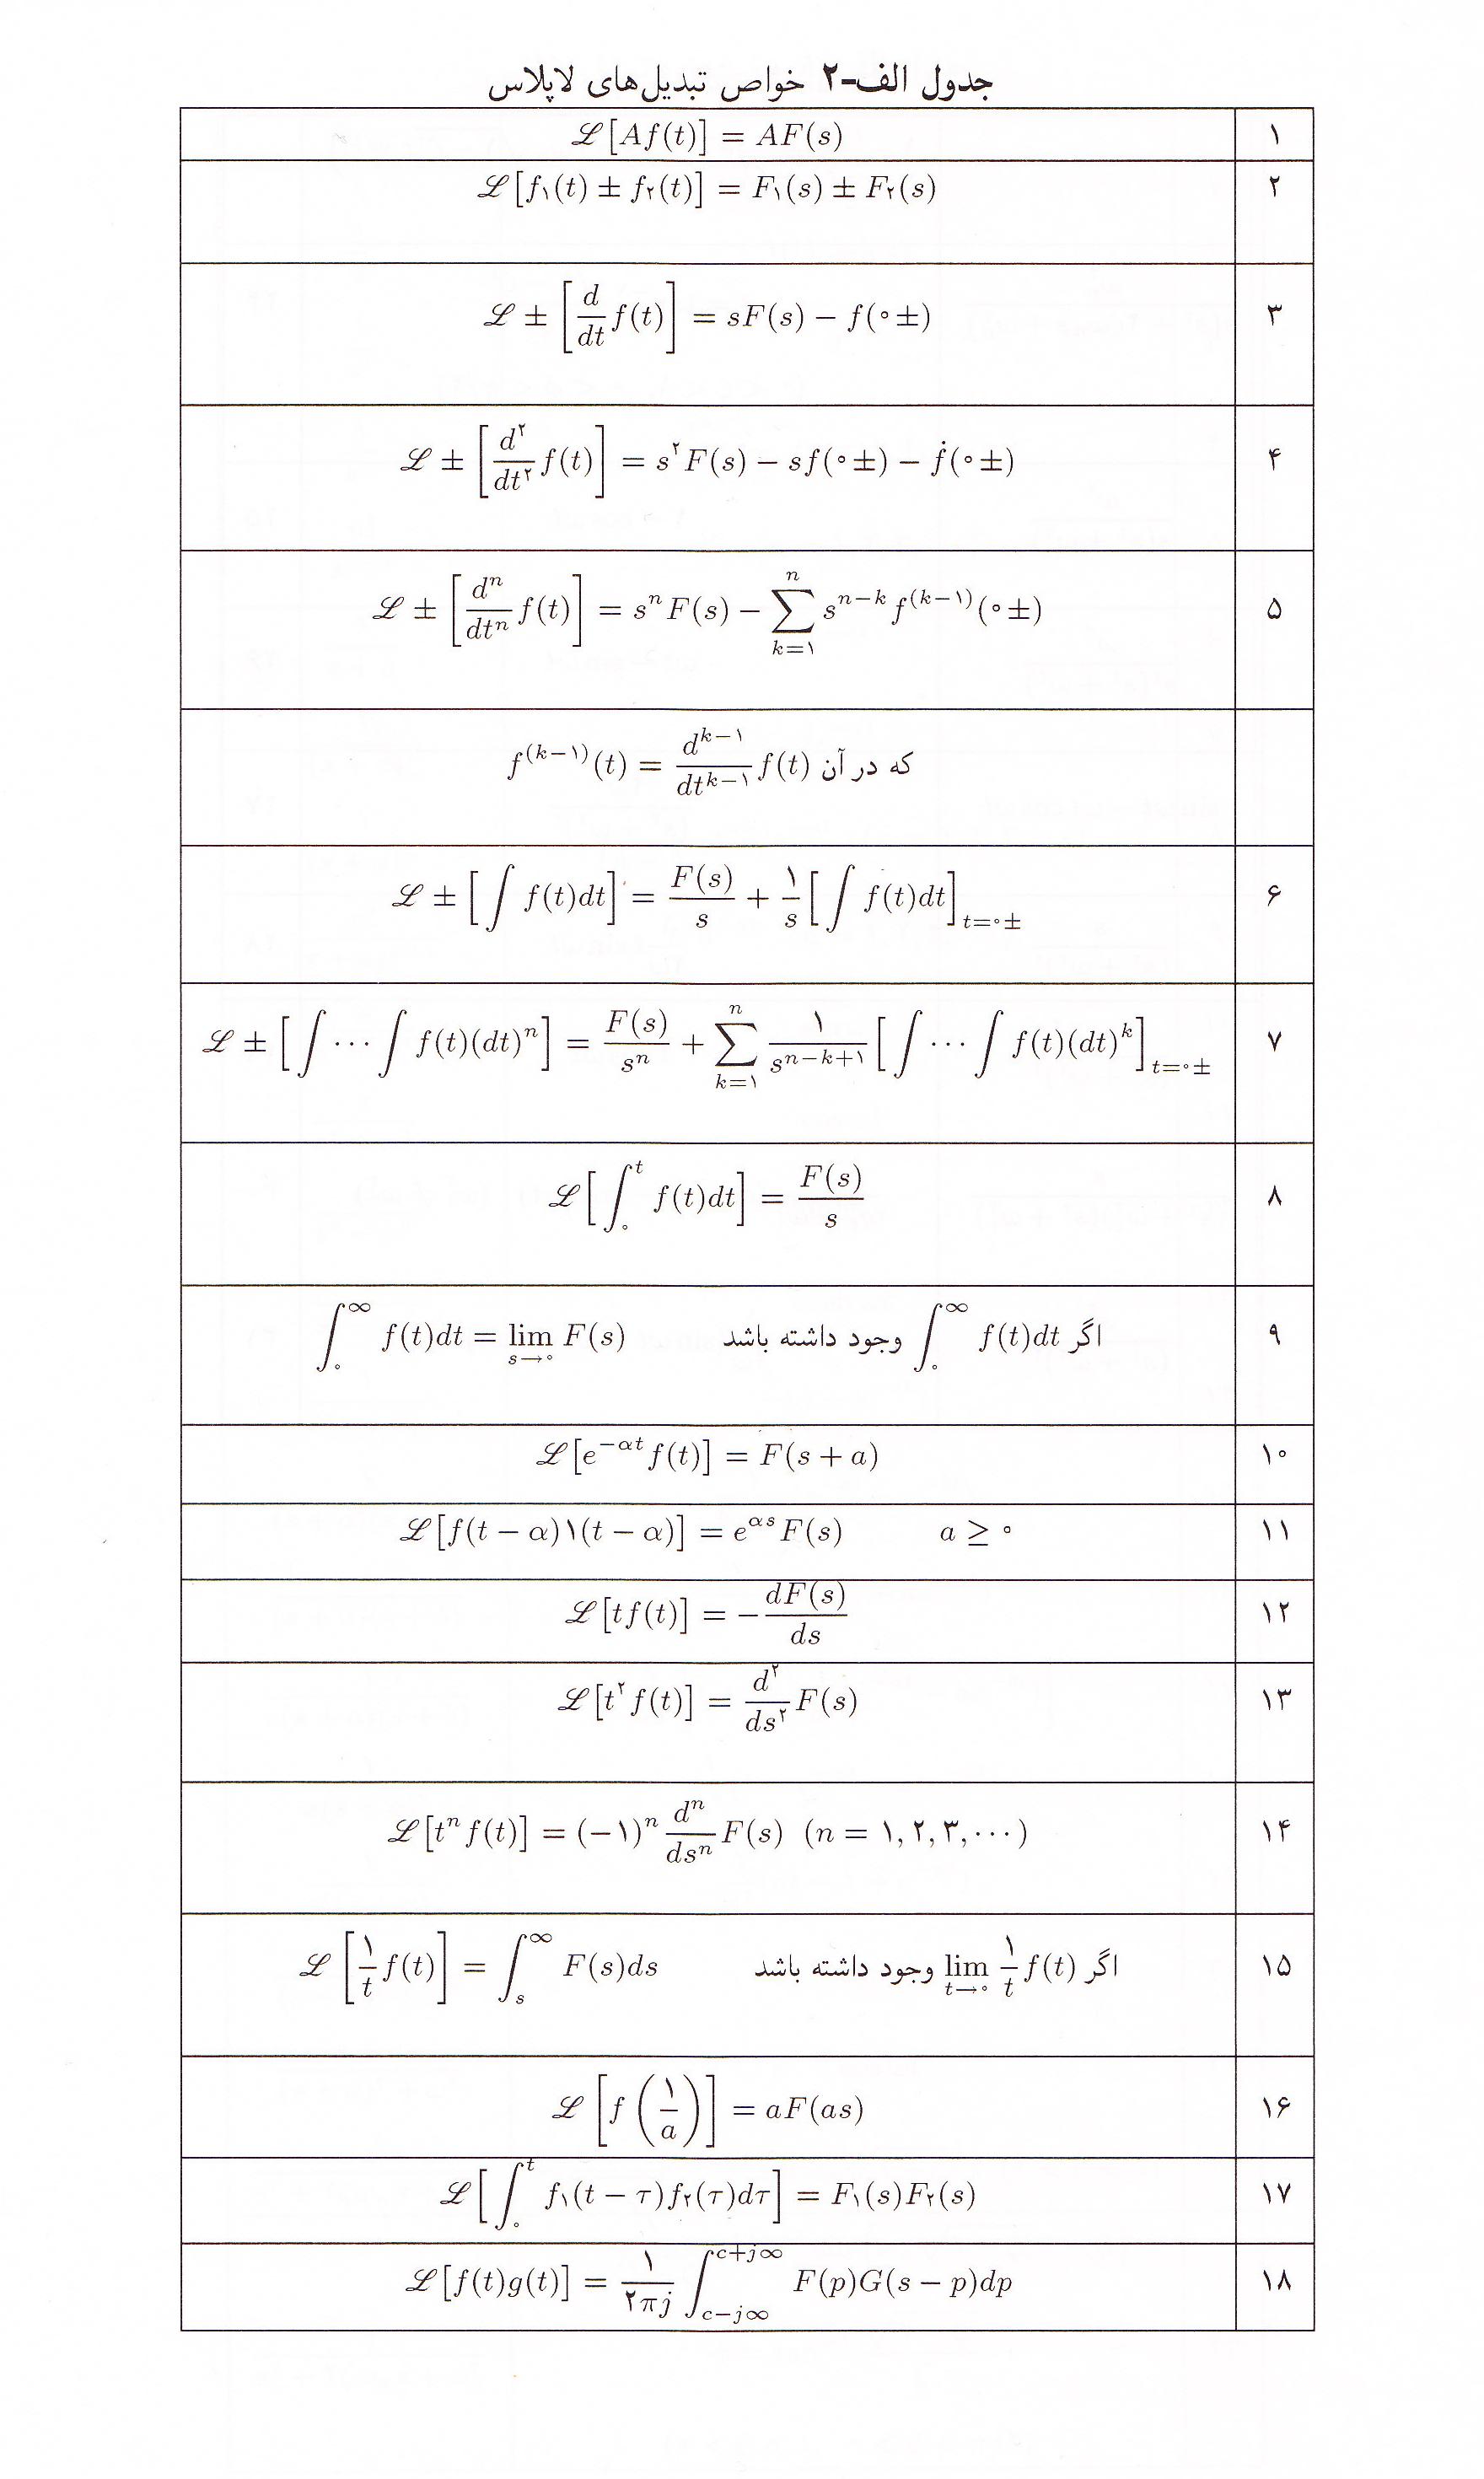 جدول الف-۲ خواص تبدیل‌های لاپلاس
۱ ℒ[Af(t)] = AF(s)
۲ ℒ[f₁(t) ± f₂(t)] = F₁(s) ± F₂(s)
۳ ℒ ± [d/dt f(t)] = sF(s) − f(۰±)
۴ ℒ ± [d^۲/dt^۲ f(t)] = s^۲F(s) − sf(۰±) − ḟ(۰±)
۵ ℒ ± [d^n/dt^n f(t)] = s^n F(s) − ∑_{k=۱}^{n} s^{n−k} f^{(k−۱)}(۰±)
که در آن f^{(k−۱)}(t) = d^{k−۱}/dt^{k−۱} f(t)
۶ ℒ ± [∫ f(t)dt] = F(s)/s + ۱/s [∫ f(t)dt]_{t=۰±}
۷ ℒ ± [∫ ⋯ ∫ f(t)(dt)^n] = F(s)/s^n + ∑_{k=۱}^{n} ۱/s^{n−k+۱} [∫ ⋯ ∫ f(t)(dt)^k]_{t=۰±}
۸ ℒ[∫_۰^t f(t)dt] = F(s)/s
۹ ∫_۰^∞ f(t)dt = lim_{s→۰} F(s) اگر ∫_۰^∞ f(t)dt وجود داشته باشد
۱۰ ℒ[e^{−αt} f(t)] = F(s + a)
۱۱ ℒ[f(t − α)۱(t − α)] = e^{αs} F(s) a ≥ ۰
۱۲ ℒ[tf(t)] = −dF(s)/ds
۱۳ ℒ[t^۲ f(t)] = d^۲/ds^۲ F(s)
۱۴ ℒ[t^n f(t)] = (−۱)^n d^n/ds^n F(s) (n = ۱, ۲, ۳, ⋯)
۱۵ ℒ[۱/t f(t)] = ∫_s^∞ F(s)ds اگر lim_{t→۰} ۱/t f(t) وجود داشته باشد
۱۶ ℒ[f(۱/a)] = aF(as)
۱۷ ℒ[∫_۰^t f₁(t − τ)f₂(τ)dτ] = F₁(s)F₂(s)
۱۸ ℒ[f(t)g(t)] = ۱/۲πj ∫_{c−j∞}^{c+j∞} F(p)G(s − p)dp